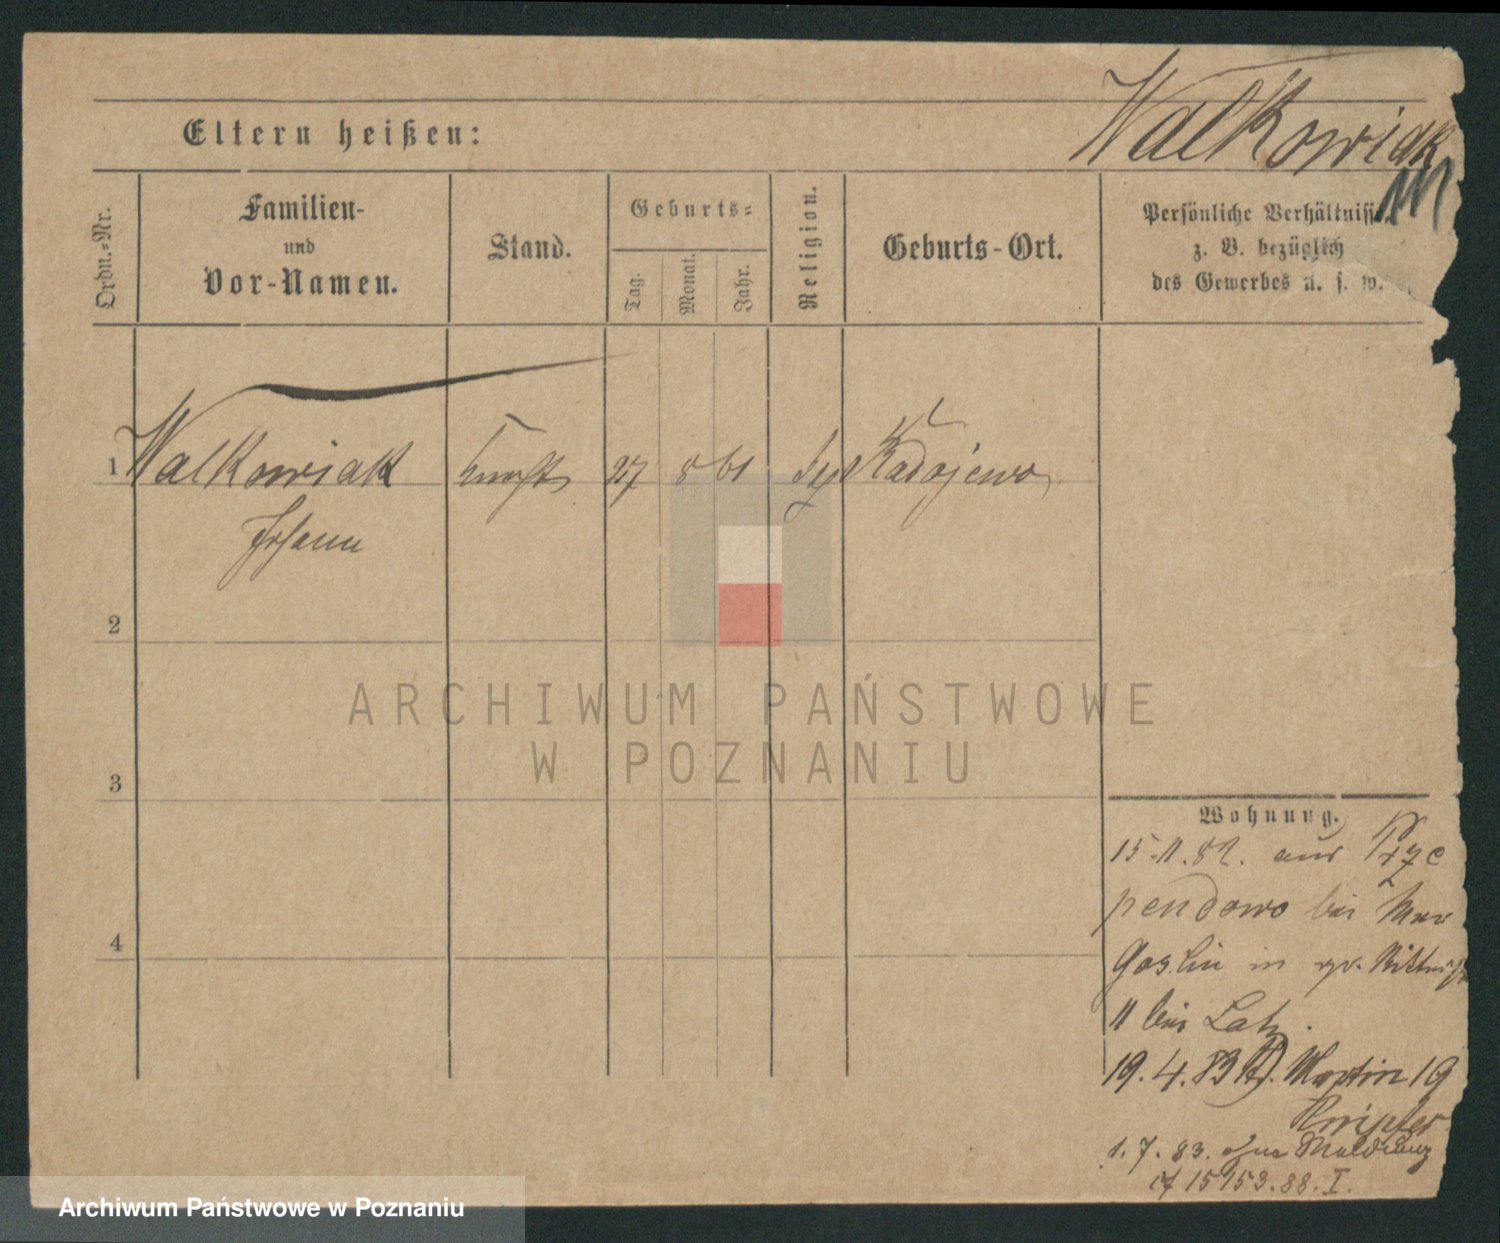 Walkowiak
Eltern heißen:
Ordn.-Nr.
Familien-
und
Vor-Namen.
Stand.
Geburts-
Tag.
Monat.
Jahr.
Religion.
Geburts-Ort.
Persönliche Verhältniss
z. B. bezüglich
des Gewerbes u. s. w.
1 Walkowiak 27 8 61 Radojewo
Johann
2
3
4
Wohnung.
15.11.82. aus Prze
pendowo bei Mur
Goslin in gr. Ritterst
11 bei
19.4.83 St. Martin 19
1.7.83. ohne Meldung
15953.88.I.
ARCHIWUM PAŃSTWOWE
W POZNANIU
Archiwum Państwowe w Poznaniu